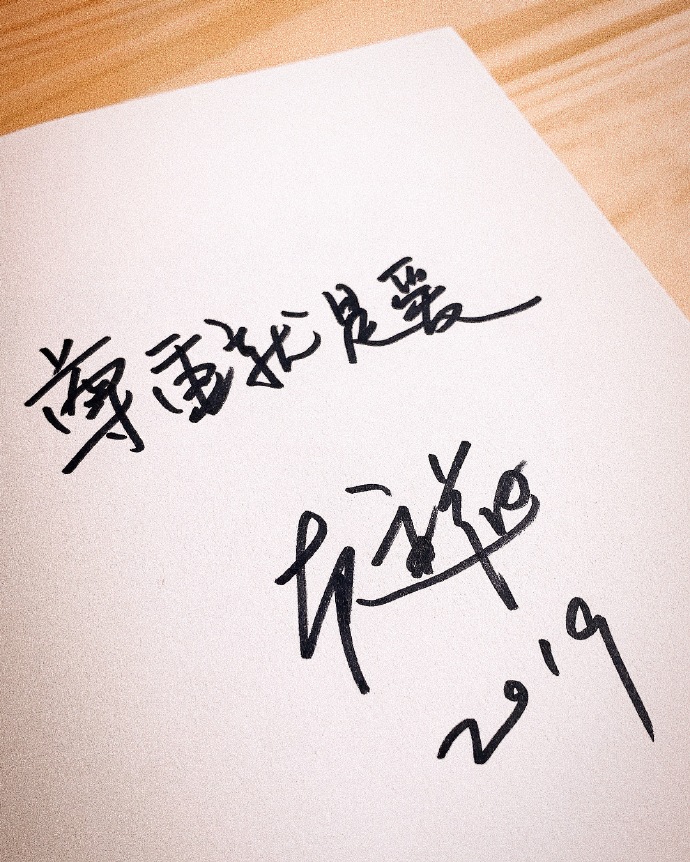 尊重就是爱
2019